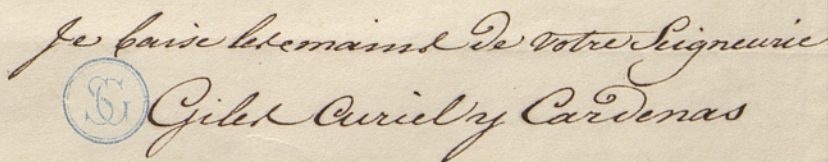 Je baise les mains de votre Seigneurie
SG
Giles Curiel y Cardenas